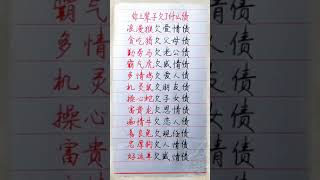 你上辈子欠了什么债
浪漫猴欠爱情债
贪吃猪欠父母债
勤劳马欠老公债
霸气虎欠感情债
多情鸡欠爱人债
机灵鼠欠朋友债
操心蛇欠子女债
富贵龙欠恩情债
痴情牛欠恋人债
善良兔欠现任债
忠厚狗欠人情债
好运羊欠感情债
霸气
多情
机灵
操心
富贵
债
债
债
债
债